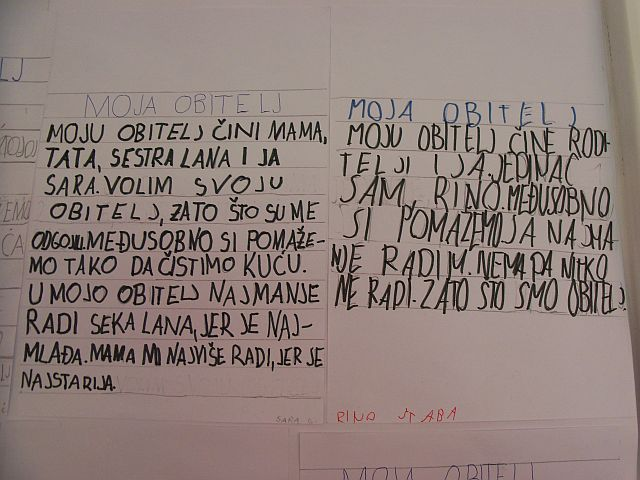 MOJA OBITELJ
MOJU OBITELJ ČINI MAMA,
TATA, SESTRA LANA I JA
SARA. VOLIM SVOJU
OBITELJ, ZATO ŠTO SU ME
ODGOJILI. MEĐUSOBNO SI POMAŽE-
MO TAKO DA ČISTIMO KUĆU.
U MOJO OBITELJ NAJMANJE
RADI SEKA LANA, JER JE NAJ-
MLAĐA. MAMA MI NAJVIŠE RADI, JER JE
NAJSTARIJA.
SARA
MOJA OBITELJ
MOJU OBITELJ ČINE RODI-
TELJI I JA. JEDINAC
SAM, RINO. MEĐUSOBNO
SI POMAŽEMO. JA NAJMA
NJE RADIM. NEMA DA NITKO
NE RADI. ZATO ŠTO SMO OBITELJ.
RINO ŠTABA
MOJA OBITELJ
LJ